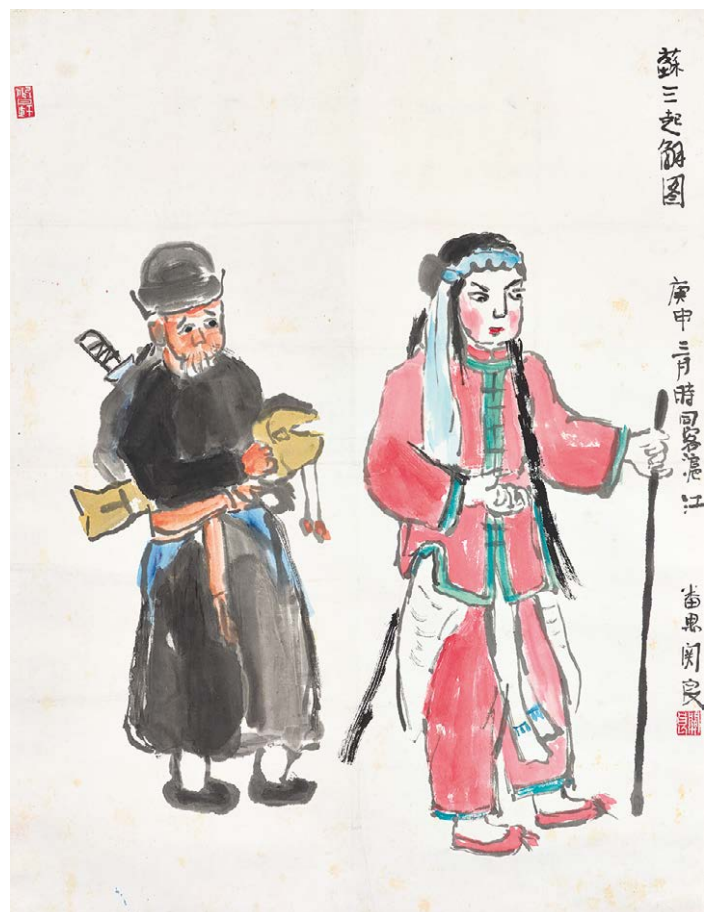 蘇三起解圖
庚申三月時同客滬江
番禺関良
關良